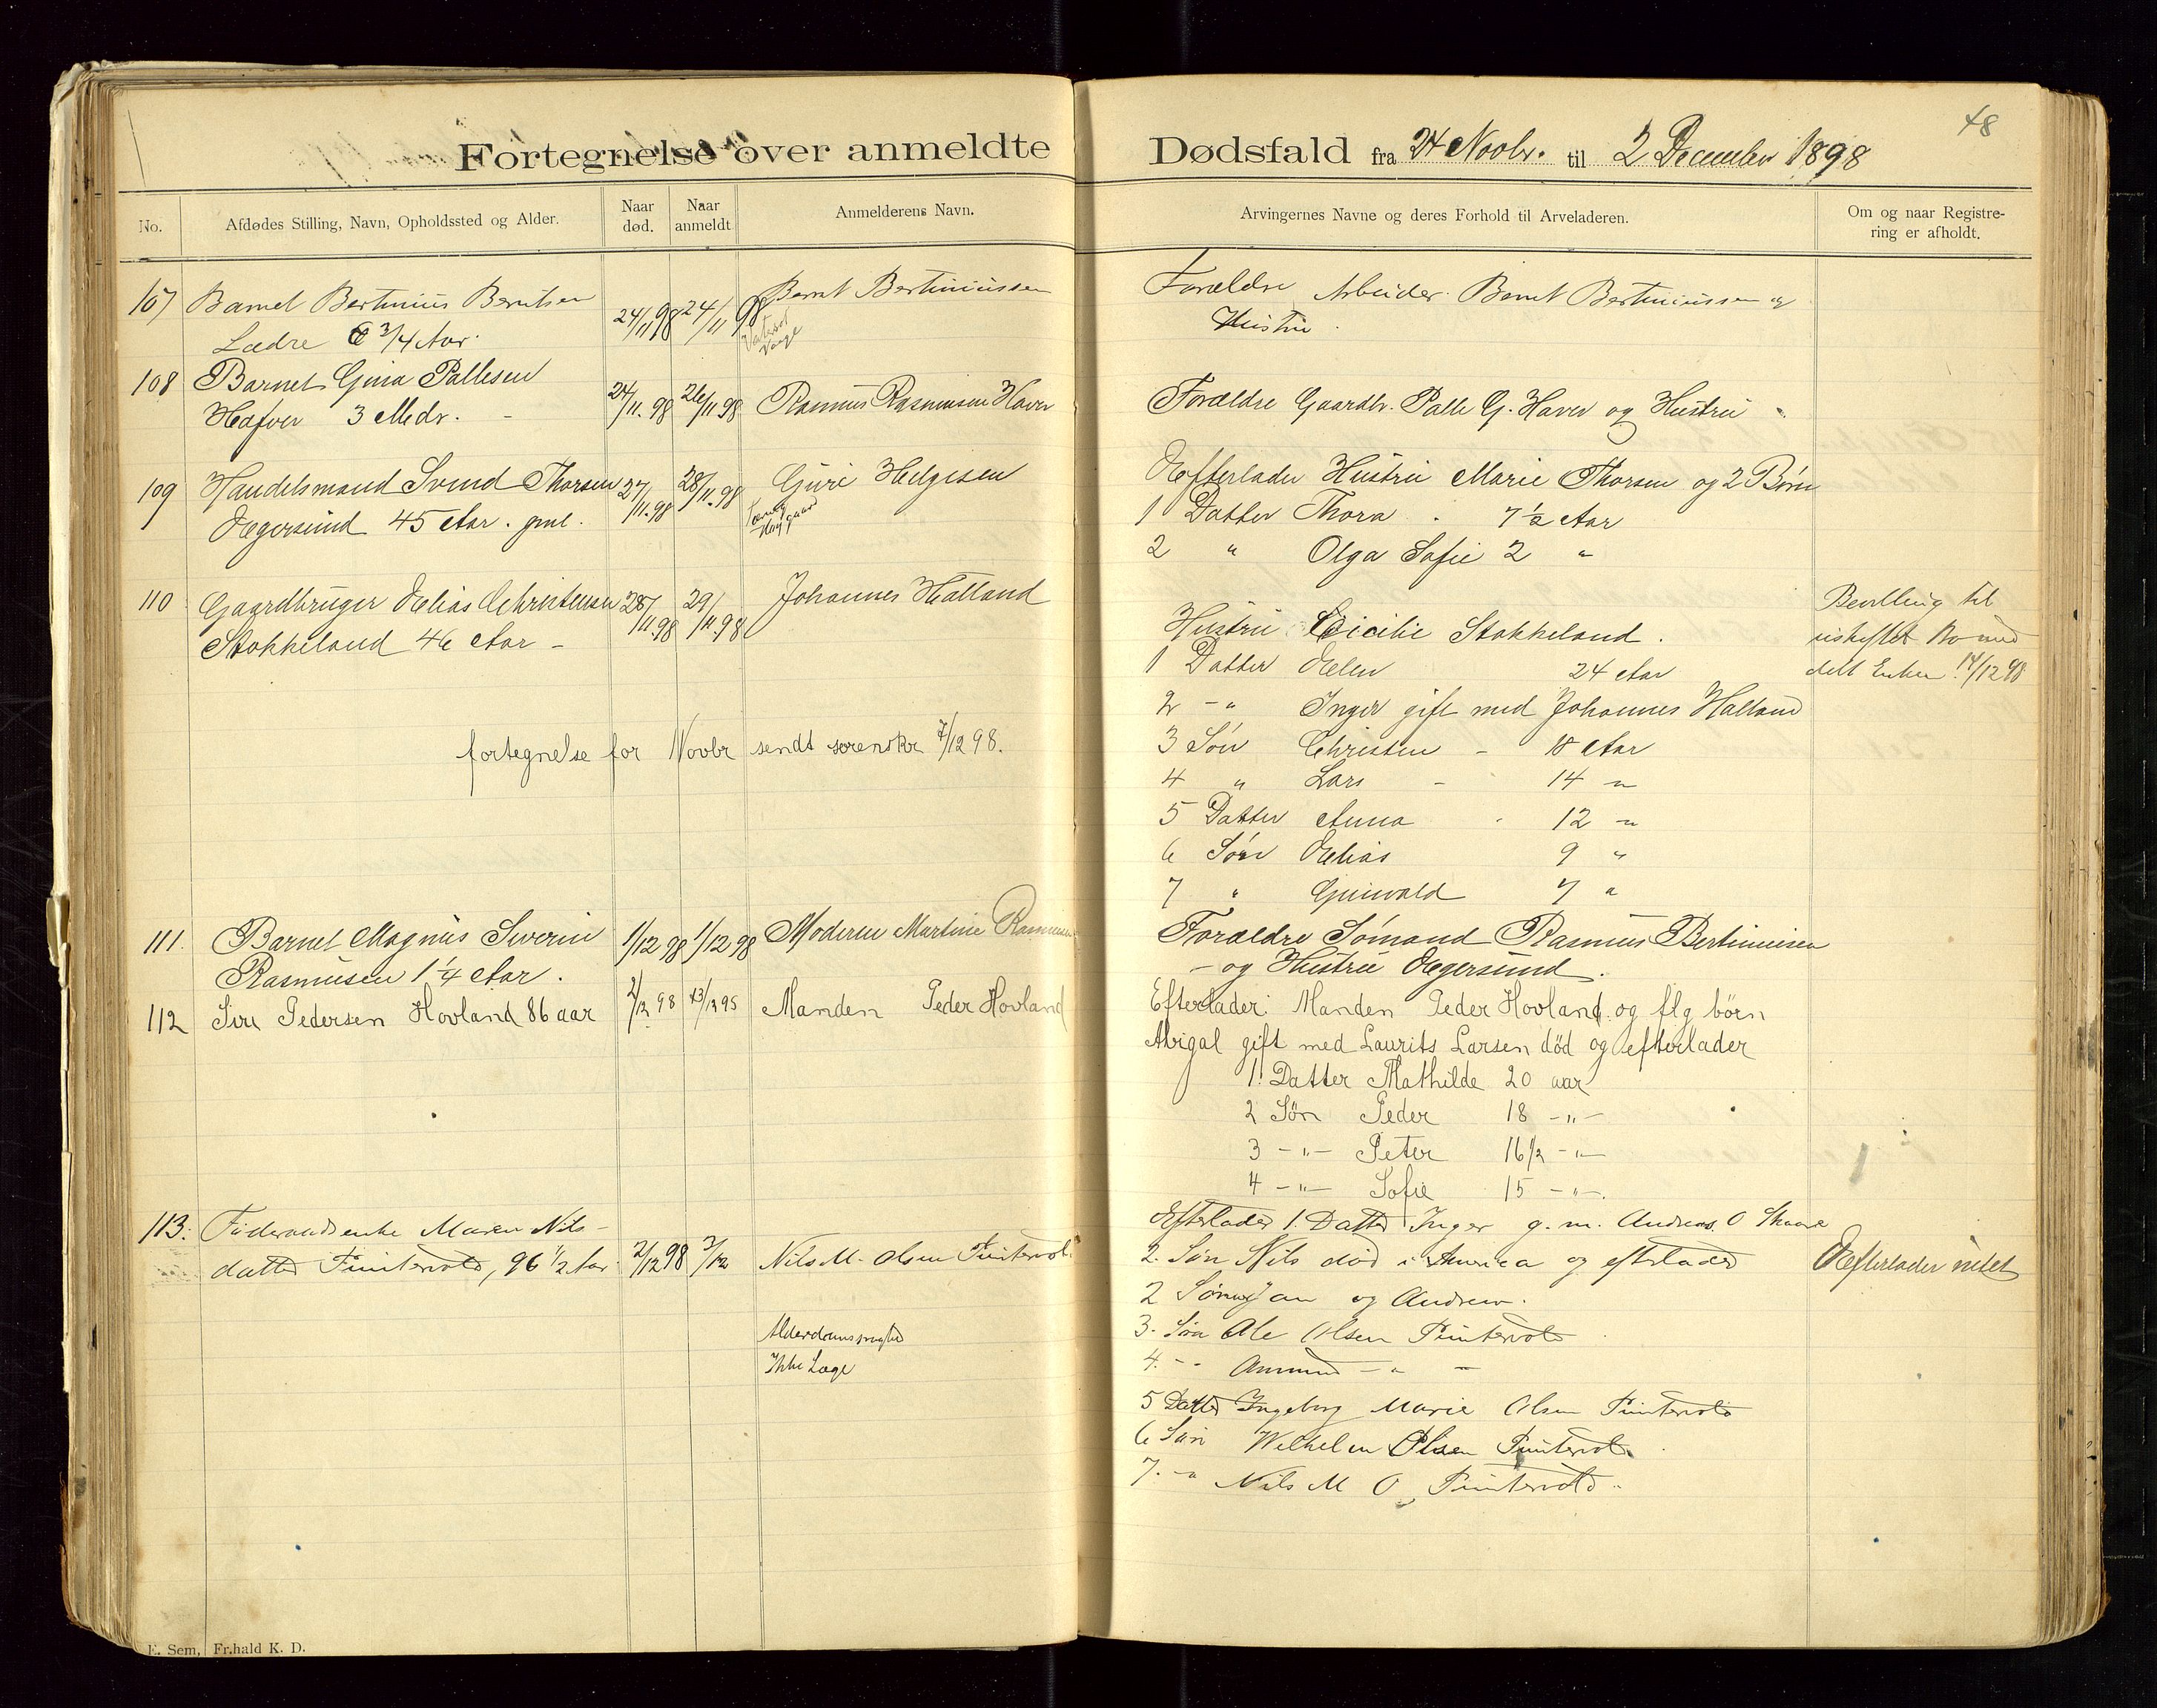 48
Fortegnelse over anmeldte Dødsfald fra 24 Novbr. til 2 December 1898
No.
Afdødes Stilling, Navn, Opholdssted og Alder.
Naar død.
Naar anmeldt
Anmelderens Navn.
Arvingernes Navne og deres Forhold til Arveladeren.
Om og naar Registre-
ring er afholdt.
107 Barnet Bertinius Berntsen 24/11 98 24/11 98 Bernt Bertiniussen
Lædre 3/4 Aar.
Forældre Arbeider Bernt Bertiniussen og
Hustru
108 Barnet Gina Pallesen
Hafver 3 Mdr. - 24/11.98 26/11 98 Rasmus Rasmussen Haver
Forældre Gaardbr. Palle G. Haver og Hustru
109 Handelsmand Svend Thorsen 27/11.98 28/11.98 Guri Helgesen
Egersund 45 Aar. gml.
Efterlader Hustru Marie Thorsen og 2 Børn
1 Datter Thora 7 1/2 Aar
2 " Olga Sofie 2 "
110 Gaardbruger Elias Christensen 28/11 98 29/11.98 Johannes Hatland
Stokkeland 46 Aar -
Hustru Cicilie Stokkeland.
1 Datter Elen 24 Aar
2 - " Inger gift med Johannes Hatland
3 Søn Christen - 18 Aar
4 " Lars - 14 "
5 Datter Anna 12 "
6 Søn Elias 9 "
7 " Gunvald 7 "
Bevilling til
uskiftet Bo med
delt Enken 14/12 98
fortegnelse for Novbr sendt sorenskr 7/12 98.
111. Barnet Magnus Severin 1/12 98 1/12 98 Moderen Martine Rasmussen
Rasmussen 1 1/4 Aar.
Forældre Sømand Rasmus Bertinuisen
- og Hustru Egersund.
112 Siri Pedersen Hovland 86 aar 2/12 98 3/12 95 Manden Peder Hovland
Efterlader: Manden Peder Hovland og flg børn
Abigal gift med Laurits Larsen død og efterlader
1. Datter Mathilde 20 aar
2 Søn Peder 18 -"-
3 -"- Peter 16 1/2 -"-
4 -"- Sofie 15 -"-.
113. Føderaadsenke Maren Nils-
datter Puntervold, 96 1/2 Aar. 2/12 98 3/12 Nils M. Olsen Puntervold
Alderdomssvaghed
Ikke Læge
Efterlader 1. Datter Inger g. m. Andreas O Skaare
2. Søn Nils død i America og efterlader
2 Sønner Jan og Andrew.
3. Søn Ole Olsen Puntervold
4. - - Anmund - " -
5 Datter Ingeborg Marie Olsen Puntervold
6 Søn Wilhelm Olsen Puntervold.
7. - " Nils M O. Puntervold.
Efterlader intet
E. Sem, Fr.hald K. D.